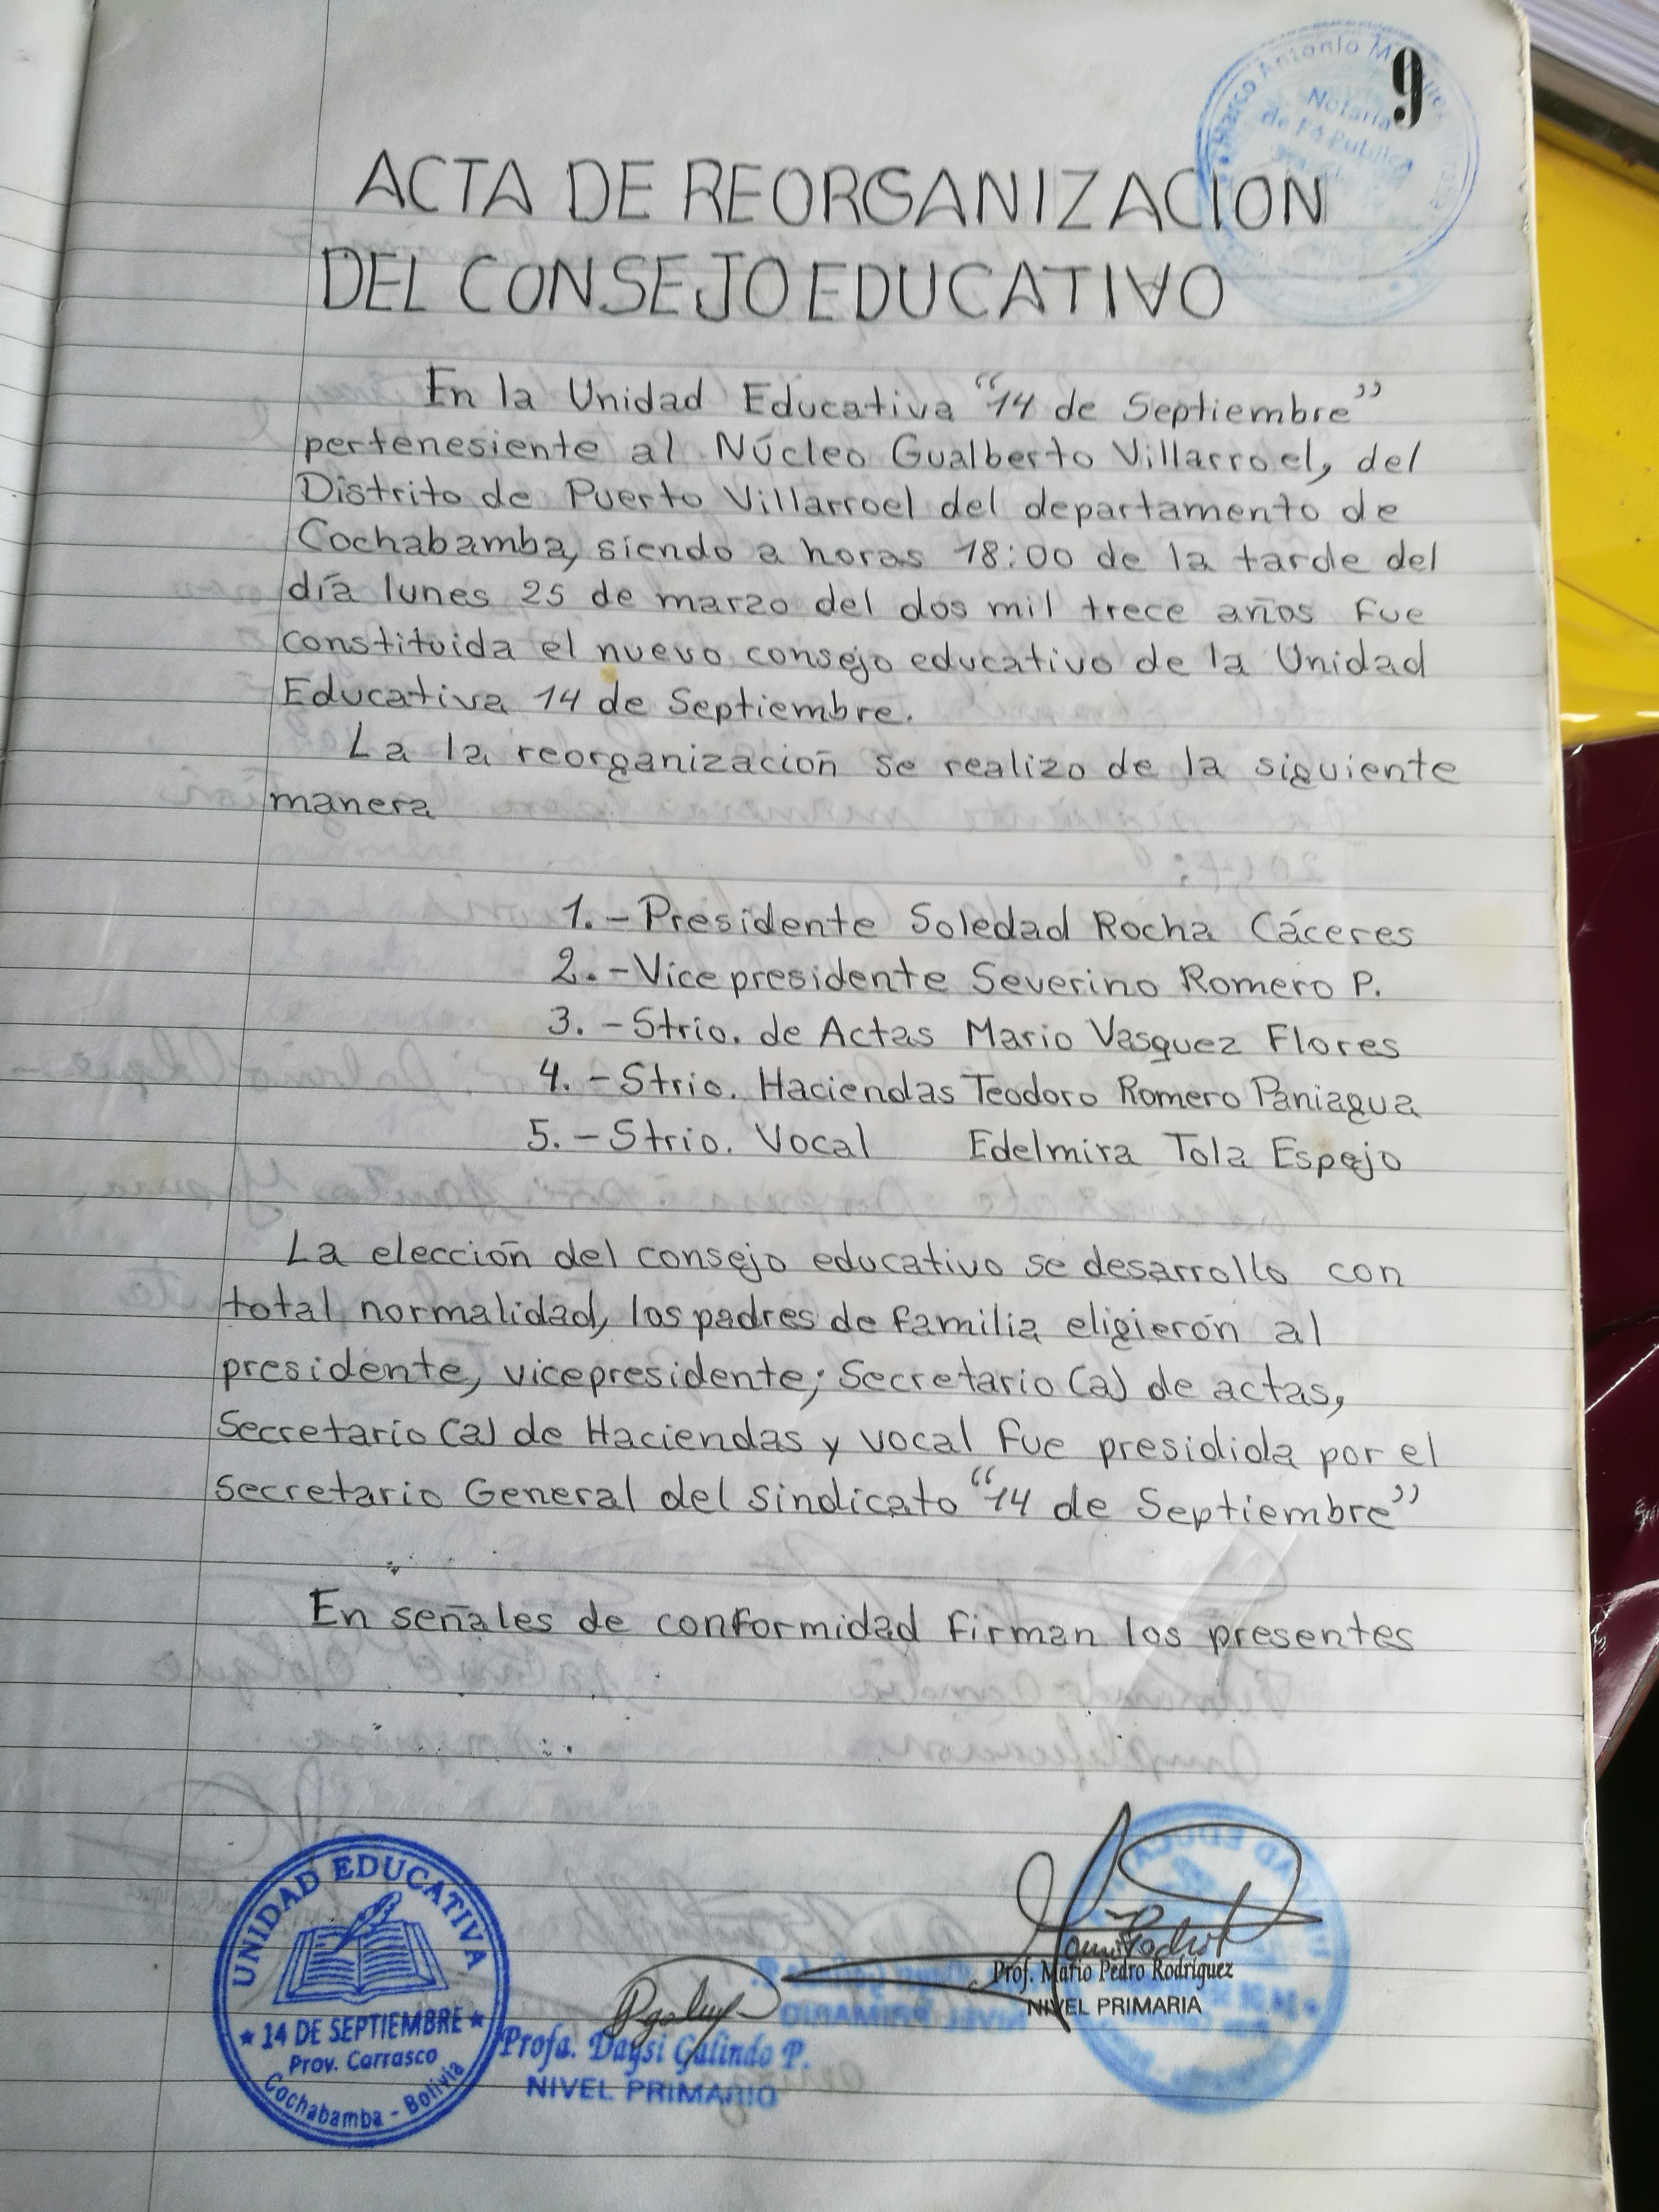 9
Marco Antonio
Notaria
de Fé Publica
ACTA DE REORGANIZACION
DEL CONSEJO EDUCATIVO
En la Unidad Educativa "14 de Septiembre"
pertenesiente al Núcleo Gualberto Villarroel, del
Distrito de Puerto Villarroel del departamento de
Cochabamba, siendo a horas 18:00 de la tarde del
día lunes 25 de marzo del dos mil trece años fue
constituida el nuevo consejo educativo de la Unidad
Educativa 14 de Septiembre.
La la reorganización se realizo de la siguiente
manera
1.- Presidente Soledad Rocha Cáceres
2.- Vicepresidente Severino Romero P.
3.- Strio. de Actas Mario Vasquez Flores
4.- Strio. Haciendas Teodoro Romero Paniagua
5.- Strio. Vocal Edelmira Tola Espejo
La elección del consejo educativo se desarrollo con
total normalidad, los padres de familia eligierón al
presidente, vicepresidente; Secretario (a) de actas,
Secretario (a) de Haciendas y vocal fue presidida por el
Secretario General del Sindicato "14 de Septiembre"
En señales de conformidad firman los presentes
UNIDAD EDUCATIVA
★ 14 DE SEPTIEMBRE ★
Prov. Carrasco
Cochabamba - Bolivia
Profa. Daysi Galindo P.
NIVEL PRIMARIO
Prof. Mario Pedro Rodríguez
NIVEL PRIMARIA